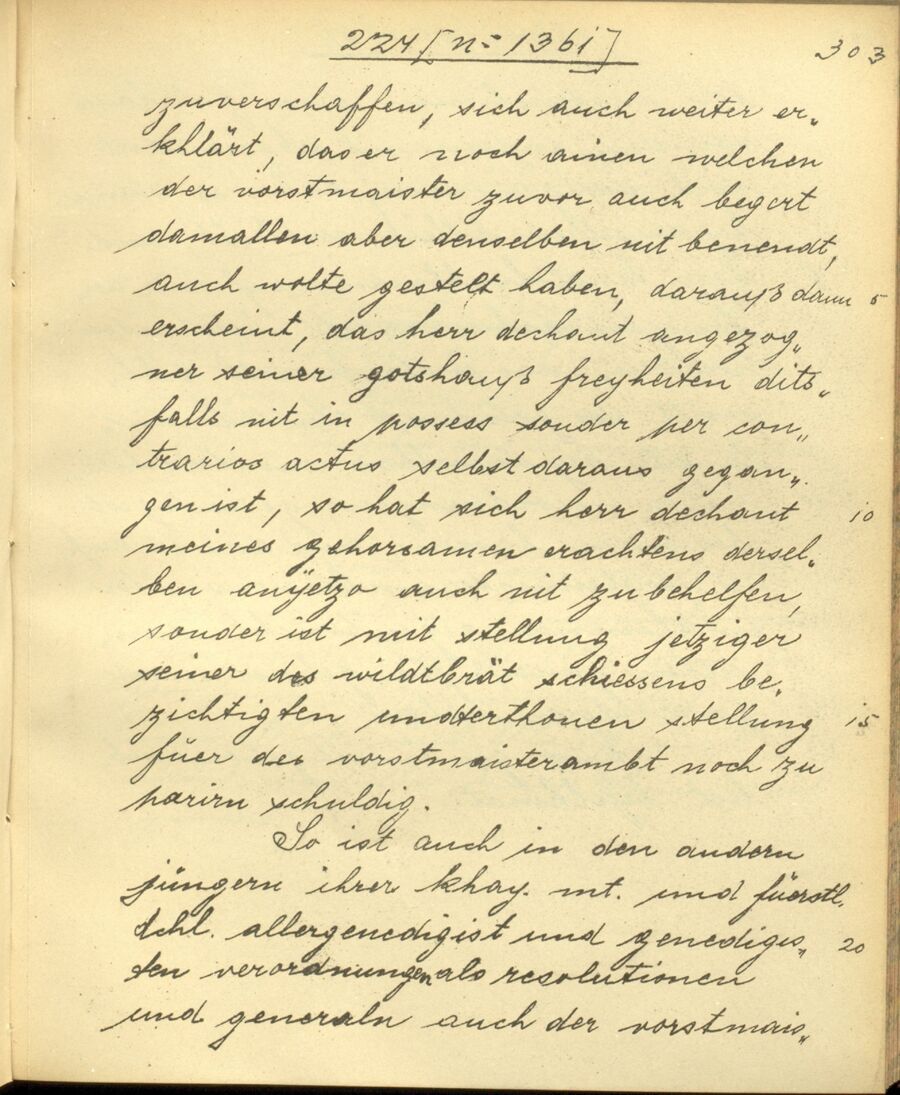 224 [n= 136i]
303
zuverschaffen, sich auch weiter er„
khlärt, das er noch ainen welchen
der vorstmaister zuvor auch begert
damallen aber denselben nit benendt,
auch wolte gestelt haben, darauß dann 5
erscheint, das herr dechant angezog„
ner seiner gotshauß freyheiten dits„
falls nit in possess sonder per con„
trarios actus selbst daraus gegan„
gen ist, so hat sich herr dechant 10
meines gehorsamen erachtens dersel„
ben anÿetzo auch nit zubehelfen,
sonder ist mit stellung jetziger
seiner des wildtbrät schiessens be„
zichtigten undterthonen stellung 15
füer des vorstmaisterambt noch zu
parirn schuldig.
So ist auch in den andern
jüngern ihrer khay. mt. und füerstl.
dchl. allergenedigist und genedigis„ 20
ten verordnungen als resolutionen
und generaln auch der vorstmais„